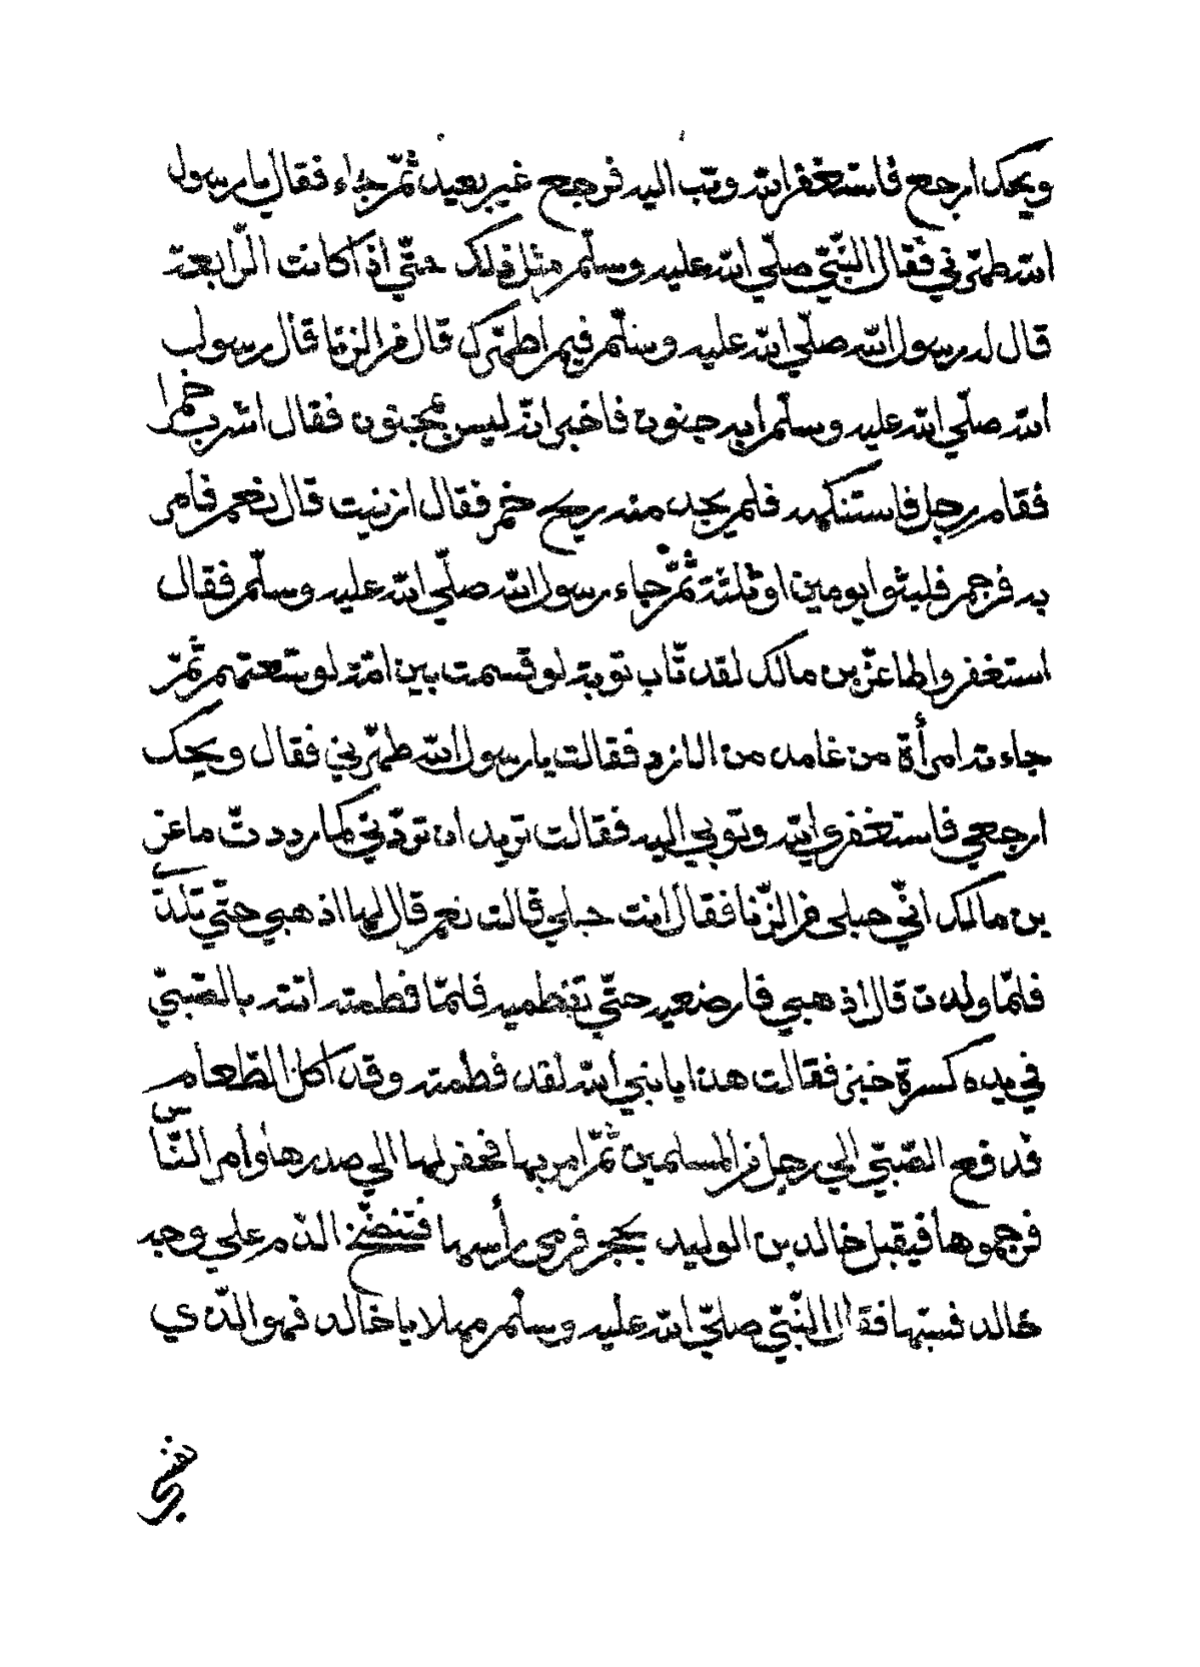 ويحك ارجع فاستغفر الله وتب اليه فرجع غير بعيد ثمّ جاء فقال يا رسول
الله طهّرني فقال النّبيّ صلّي الله عليه وسلّم مثل ذلك حتّي اذا كانت الرّابعة
قال له رسول الله صلّي الله عليه وسلّم فيم اطهّرك قال من الزنا قال رسول
الله صلّي الله عليه وسلّم ابه جنون فاخبر انّه ليس بمجنون فقال اشرب خمرا
فقام رجل فاستنكهه فلم يجد منه ريح خمر فقال ازنيت قال نعم فامر
به فرجم فلبثوا يومين او ثلثة ثمّ جاء رسول الله صلّي الله عليه وسلّم فقال
استغفروا لماعز بن مالك لقد تاب توبة لو قسمت بين امّة لوسعتهم ثمّ
جاءته امرأة من غامد من الازد فقالت يا رسول الله طهّرني فقال ويحك
ارجعي فاستغفري الله وتوبي اليه فقالت تريد ان تردّني كما رددتّ ماعز
بن مالك انّي حبلى من الزّنا فقال انت حبلي قالت نعم قال لها اذهبي حتّي تلد
فلمّا ولدت قال اذهبي فارضعيه حتّي تفطميه فلمّا فطمته اتته بالصّبيّ
في يده كسرة خبز فقالت هذا يا نبي الله لقد فطمته وقد اكل الطّعام
فدفع الصّبيّ الي رجل من المسلمين ثمّ امر بها فحفر لها الي صدرها وامر النّاس
فرجموها فيقبل خالد بن الوليد بحجر فرمى رأسها فتنضّخ الدّم علي وجه
خالد فسبّها فقال النّبيّ صلّي الله عليه وسلّم مهلا يا خالد فهو الّذي